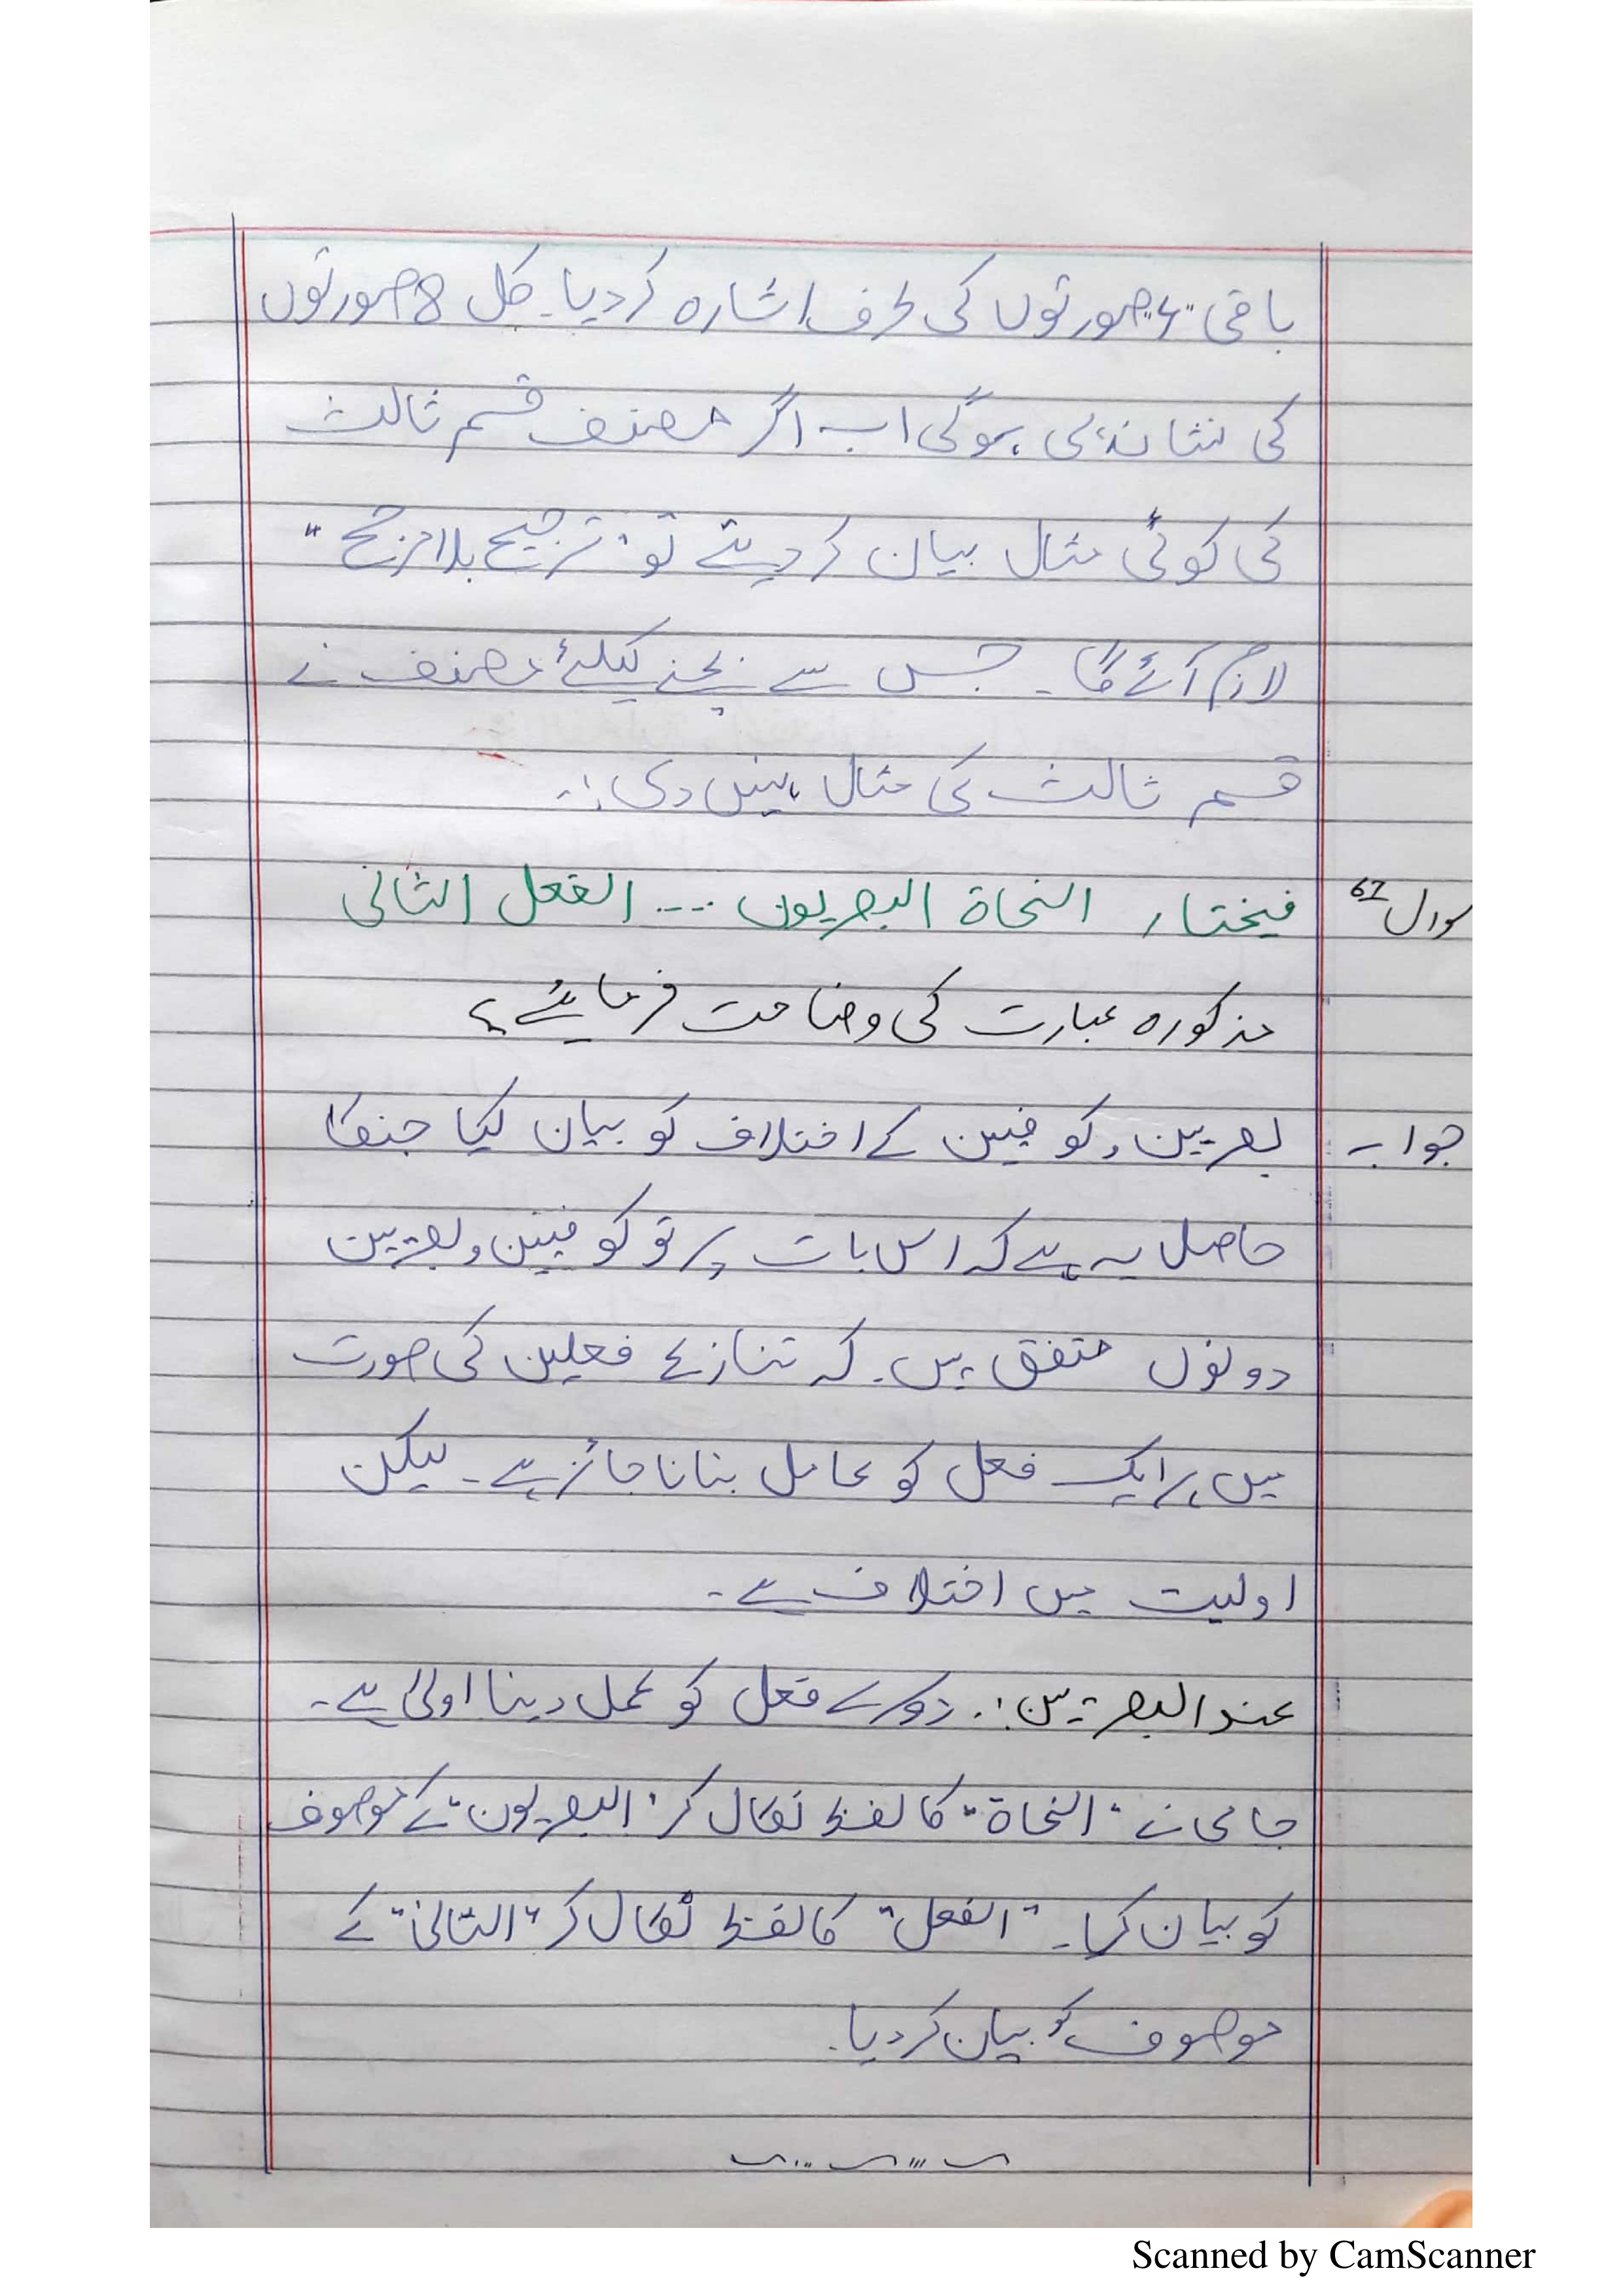 باقی "4" صورتوں کی طرف اشارہ کردیا۔ کل 8 صورتوں
کی نشاندہی ہوگی اب اگر مصنف قسم ثالث
کی کوئی مثال بیان کردیتے تو "ترجیح بلا مرجح"
لازم آئے گا۔ جس سے بچنے کیلئے مصنف نے
قسم ثالث کی مثال نہیں دی:۔
سوال 62 فيختار النحاة البصريون .... الفعل الثانی
مذکورہ عبارت کی وضاحت فرمائیے؟
جواب بصریین و کوفیین کے اختلاف کو بیان کیا جنکا
حاصل یہ ہے کہ اس بات پر تو کوفیین و بصریین
دونوں متفق ہیں۔ کہ تنازع فعلین کی صورت
میں ہر ایک فعل کو عامل بنانا جائز ہے۔ لیکن
اولیت میں اختلاف ہے۔
عندالبصریین:۔ دوسرے فعل کو عمل دینا اولیٰ ہے۔
جامی نے "النحاة" کا لفظ نکال کر "البصریون" کے موصوف
کو بیان کیا۔ "الفعل" کا لفظ نکال کر "الثانی" کے
موصوف کو بیان کردیا۔
Scanned by CamScanner